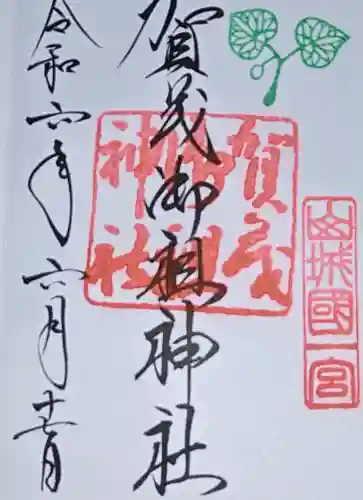 山城國一宮
賀茂御祖神社
賀茂御祖神社
令和六年六月十六日